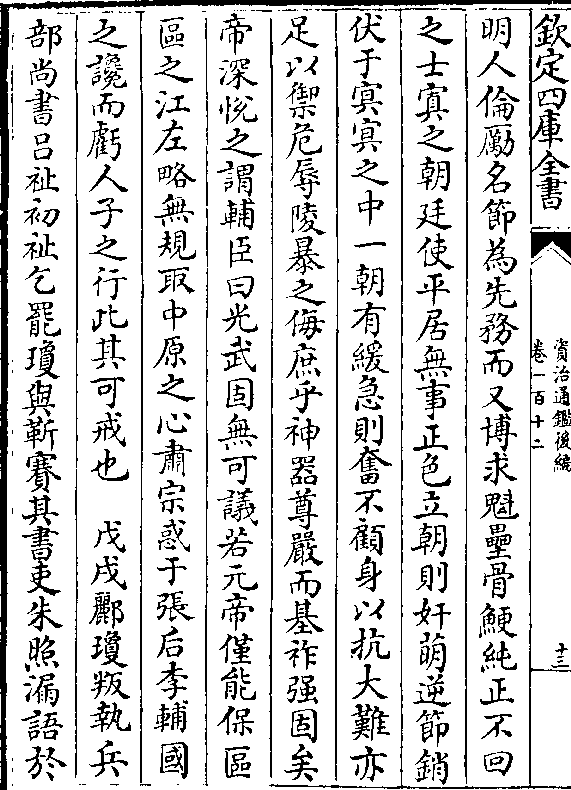 欽定四庫全書
資治通鑑後編
卷一百十二
十三
明人倫勵名節為先務而又博求魁壘骨鯁純正不回
之士寘之朝廷使平居無事正色立朝則奸萌逆節銷
伏于冥冥之中一朝有緩急則奮不顧身以抗大難亦
足以禦危辱陵暴之侮庶乎神器尊嚴而基祚强固矣
帝深悦之謂輔臣曰光武固無可議若元帝僅能保區
區之江左略無規取中原之心肅宗惑于張后李輔國
之讒而虧人子之行此其可戒也　戊戌酈瓊叛執兵
部尚書吕祉初祉乞罷瓊與靳賽其書吏朱照漏語於